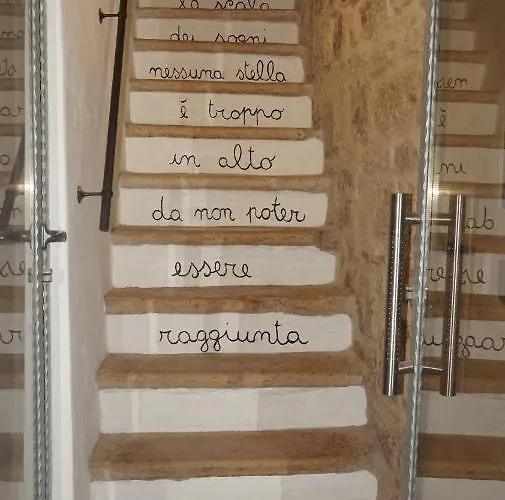 la scala
dei sogni
nessuna stella
é troppo
in alto
da non poter
essere
raggiunta